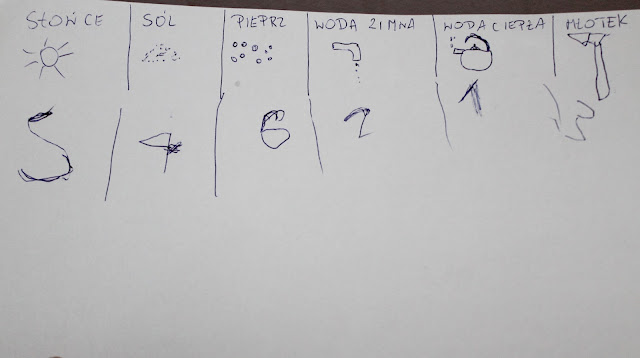 SŁOŃCE SÓL PIEPRZ WODA ZIMNA WODA CIEPŁA MŁOTEK
5 4 6 2 1 3